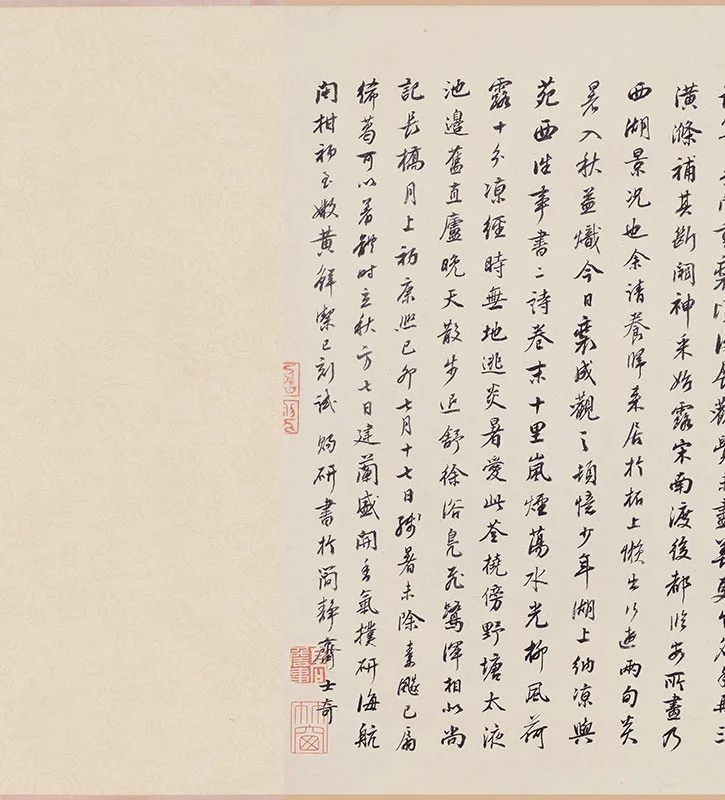 潢滌補其斷闕神采始露宋南渡後都臨安所畫乃
西湖景況也余請養歸來居於柘上懶出 兩旬炎
暑入秋益熾今日裝成觀之頓憶少年湖上納涼與
苑西往事書二詩卷末十里嵐煙蕩水光柳風荷
露十分涼經時無地逃炎暑愛此荃橈傍野塘太液
池邊舊直廬晚天散步 舒徐浴鳧飛鷺渾相似尚
記長橋月上初康熙己卯七月十七日殘暑未除素飈已屆
絺葛可以著體時立秋方七日建蘭盛開香氣撲研海航
閩柑初至嫩黃鮮潔巳刻試賜研書於簡靜齋士奇
竹窗